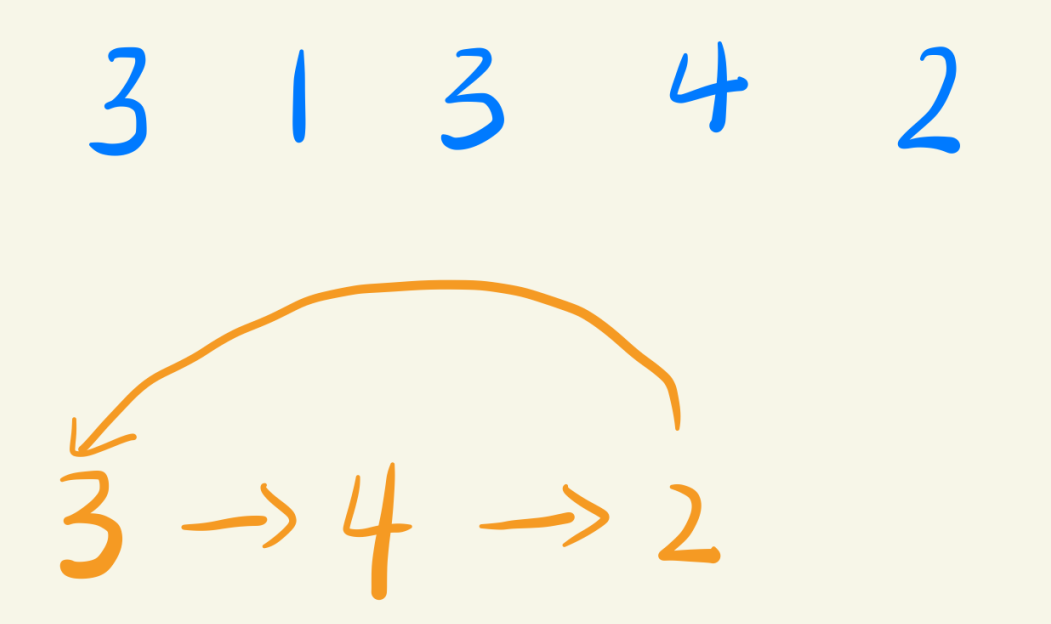 3 1 3 4 2
3 → 4 → 2